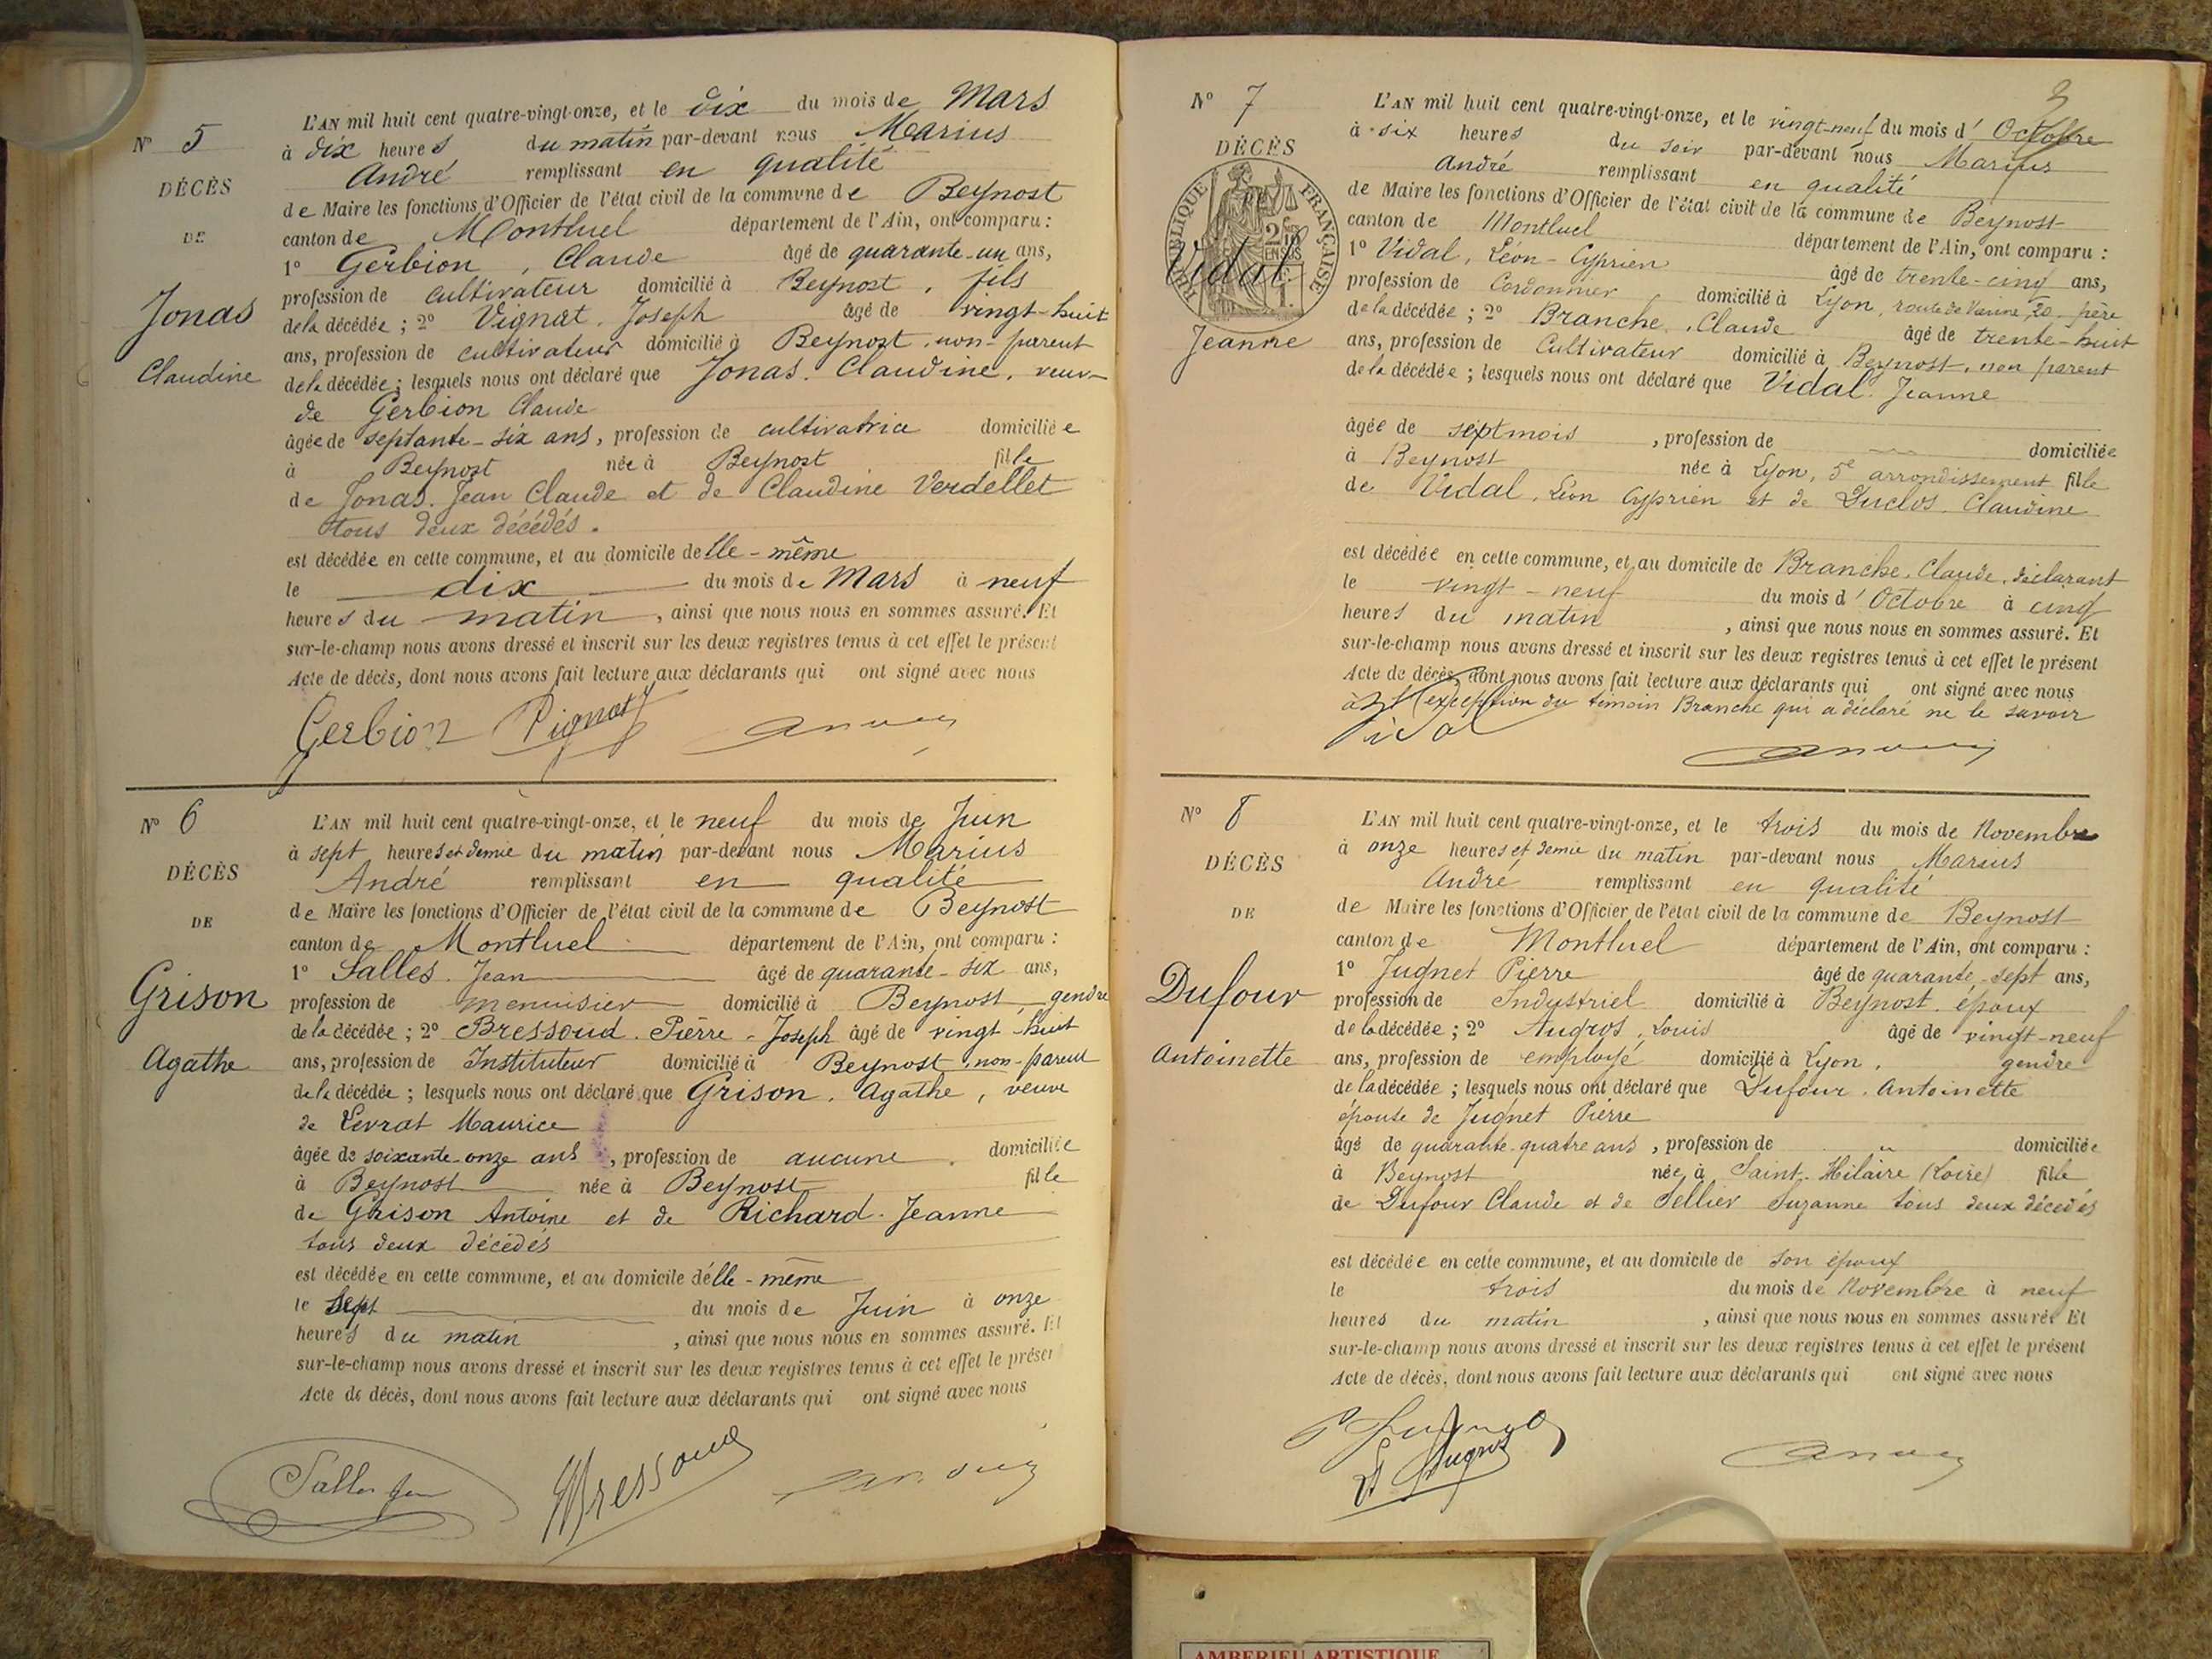 N° 5
DÉCÈS
DE
Jonas
Claudine
L'AN mil huit cent quatre-vingt-onze, et le dix du mois de Mars
à dix heures du matin par-devant nous Marius
André remplissant en qualité
de Maire les fonctions d'Officier de l'état civil de la commune de Beynost
canton de Montluel département de l'Ain, ont comparu :
1° Gerbion, Claude âgé de quarante-un ans,
profession de cultivateur domicilié à Beynost, fils
de la décédée ; 2° Vignat, Joseph âgé de vingt-huit
ans, profession de cultivateur domicilié à Beynost, non-parent
de la décédée ; lesquels nous ont déclaré que Jonas, Claudine, veuve
de Gerbion Claude
âgée de septante-six ans, profession de cultivatrice domiciliée
à Beynost née à Beynost fille
de Jonas, Jean Claude et de Claudine Verdellet
tous deux décédés.
est décédée en cette commune, et au domicile delle-même
le dix du mois de Mars à neuf
heures du matin, ainsi que nous nous en sommes assuré. Et
sur-le-champ nous avons dressé et inscrit sur les deux registres tenus à cet effet le présent
Acte de décès, dont nous avons fait lecture aux déclarants qui ont signé avec nous
Gerbion Pignat
N° 6
DÉCÈS
DE
Grison
Agathe
L'AN mil huit cent quatre-vingt-onze, et le neuf du mois de Juin
à sept heures et demie du matin par-devant nous Marius
André remplissant en qualité
de Maire les fonctions d'Officier de l'état civil de la commune de Beynost
canton de Montluel département de l'Ain, ont comparu :
1° Salles, Jean âgé de quarante-six ans,
profession de menuisier domicilié à Beynost, gendre
de la décédée ; 2° Bressoud, Pierre-Joseph âgé de vingt-huit
ans, profession de Instituteur domicilié à Beynost, non-parent
de la décédée ; lesquels nous ont déclaré que Grison, Agathe, veuve
de Levrat Maurice
âgée de soixante-onze ans, profession de aucune, domiciliée
à Beynost née à Beynost fille
de Grison Antoine et de Richard, Jeanne
tous deux décédés
est décédée en cette commune, et au domicile délle-même
le sept du mois de Juin à onze
heures du matin, ainsi que nous nous en sommes assuré. Et
sur-le-champ nous avons dressé et inscrit sur les deux registres tenus à cet effet le présen
Acte de décès, dont nous avons fait lecture aux déclarants qui ont signé avec nous
Salles Jean Bressoud
3
N° 7
DÉCÈS
RÉPUBLIQUE FRANÇAISE
2/10 EN SUS
1 F.
Vidal
Jeanne
L'AN mil huit cent quatre-vingt-onze, et le vingt-neuf du mois d'Octobre
à six heures du soir par-devant nous Marius
André remplissant en qualité
de Maire les fonctions d'Officier de l'état civil de la commune de Beynost
canton de Montluel département de l'Ain, ont comparu :
1° Vidal, Léon-Cyprien âgé de trente-cinq ans,
profession de Cordonnier, domicilié à Lyon, route de Vienne, 20, père
de la décédée ; 2° Branche, Claude âgé de trente-huit
ans, profession de Cultivateur domicilié à Beynost, non parent
de la décédée ; lesquels nous ont déclaré que Vidal, Jeanne
âgée de sept mois, profession de domiciliée
à Beynost née à Lyon, 5e arrondissement fille
de Vidal, Léon Cyprien et de Duclos, Claudine
est décédée en cette commune, et au domicile de Branche, Claude, déclarant
le vingt-neuf du mois d'Octobre à cinq
heures du matin, ainsi que nous nous en sommes assuré. Et
sur-le-champ nous avons dressé et inscrit sur les deux registres tenus à cet effet le présent
Acte de décès, dont nous avons fait lecture aux déclarants qui ont signé avec nous
à l'exception du témoin Branche qui a déclaré ne le savoir
Vidal
N° 8
DÉCÈS
DE
Dufour
Antoinette
L'AN mil huit cent quatre-vingt-onze, et le trois du mois de Novembre
à onze heures et demie du matin par-devant nous Marius
André remplissant en qualité
de Maire les fonctions d'Officier de l'état civil de la commune de Beynost
canton de Montluel département de l'Ain, ont comparu :
1° Jugnet Pierre âgé de quarante-sept ans,
profession de Industriel domicilié à Beynost, époux
de la décédée ; 2° Augros, Louis âgé de vingt-neuf
ans, profession de employé domicilié à Lyon, gendre
de la décédée ; lesquels nous ont déclaré que Dufour, Antoinette
épouse de Jugnet Pierre
âgé de quarante-quatre ans, profession de " domiciliée
à Beynost née à Saint-Hilaire (Loire) fille
de Dufour Claude et de Sellier Suzanne tous deux décédés
est décédée en cette commune, et au domicile de son époux
le trois du mois de Novembre à neuf
heures du matin, ainsi que nous nous en sommes assuré. Et
sur-le-champ nous avons dressé et inscrit sur les deux registres tenus à cet effet le présent
Acte de décès, dont nous avons fait lecture aux déclarants qui ont signé avec nous
P Jugnet
L Augros
AMBERIEU ARTISTIQUE